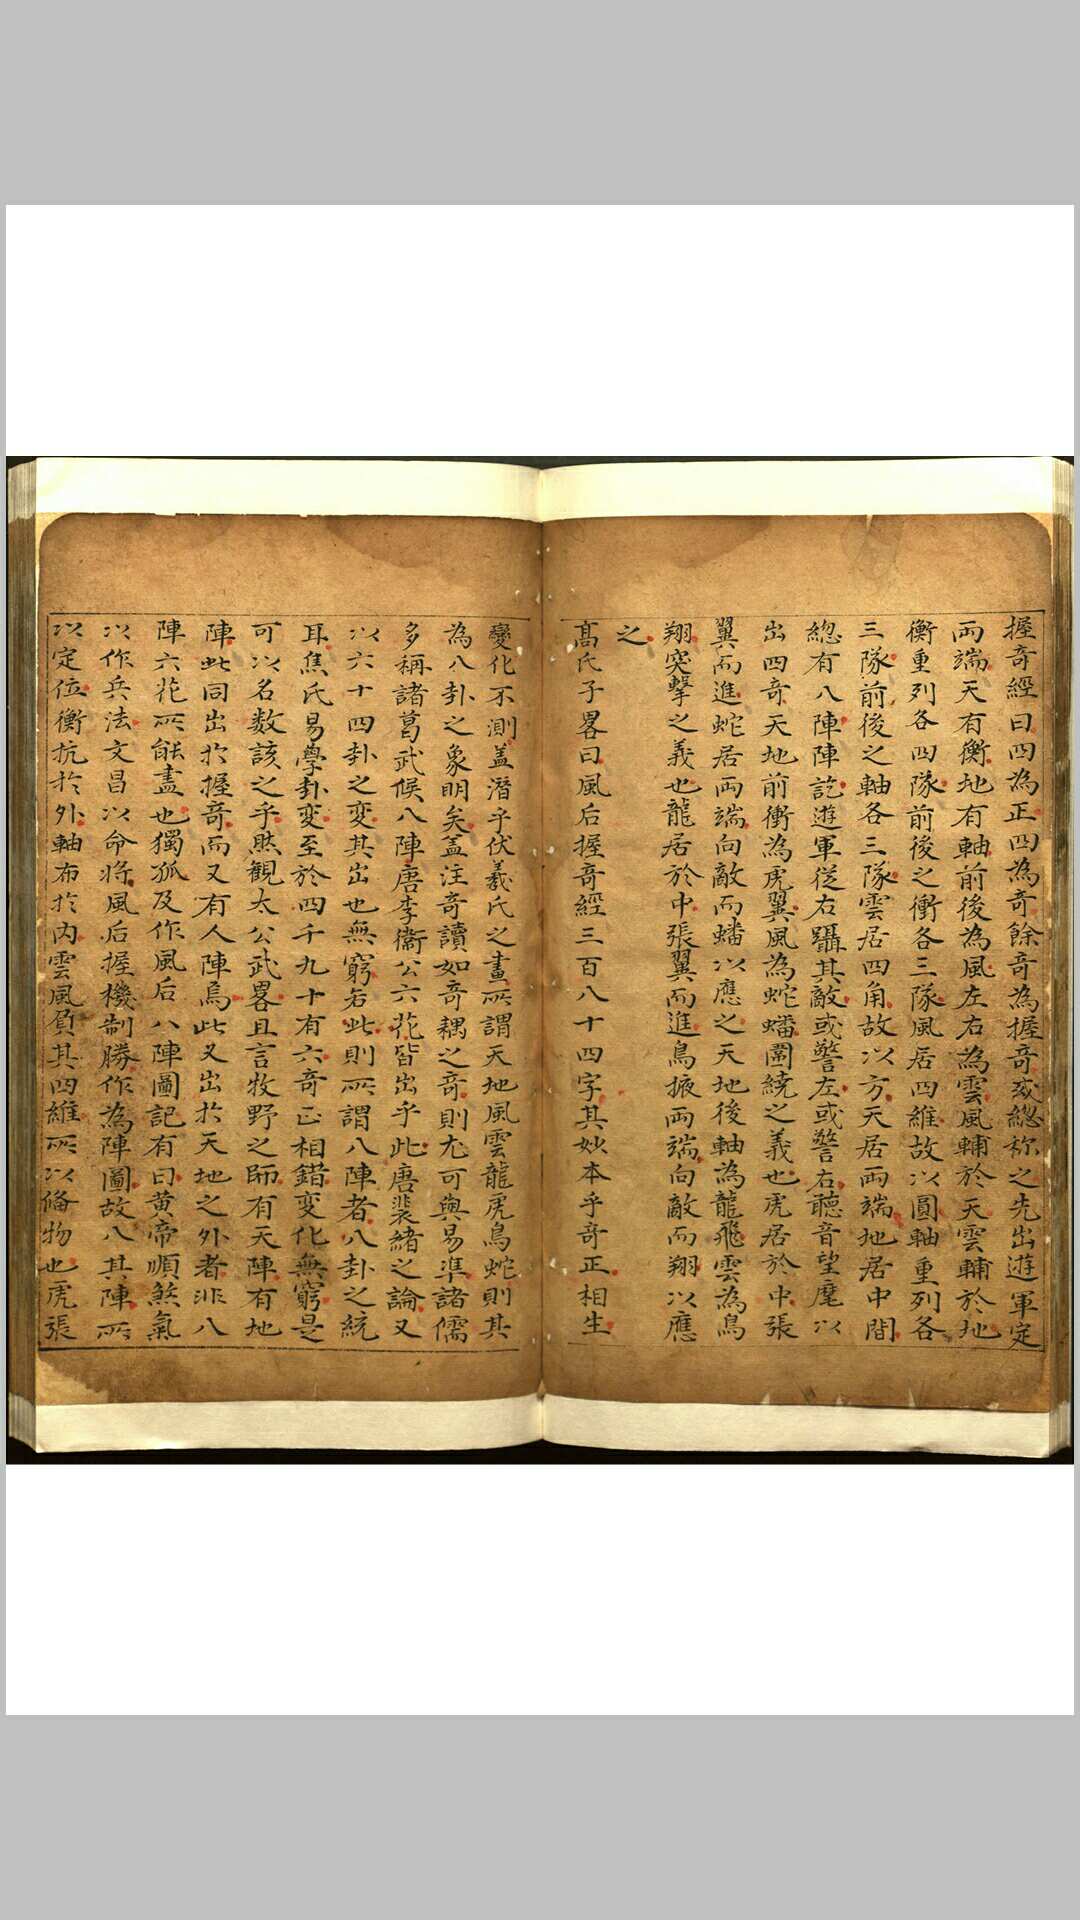 握奇經曰四為正四為奇餘奇為握奇或總称之先出遊軍定
両端天有衡地有軸前後為風左右為雲風輔於天雲輔於地
衡重列各四隊前後之衝各三隊風居四維故以圓軸重列各
三隊前後之軸各三隊雲居四角故以方天居両端地居中間
總有八陣陣訖遊軍従右躡其敵或警左或警右聽音望麾以
出四奇天地前衝為虎翼風為蛇蟠圍繞之義也虎居於中張
翼而進蛇居両端向敵而蟠以應之天地後軸為龍飛雲為鳥
翔突擊之義也龍居於中張翼而進鳥掖両端向敵而翔以應
之
髙氏子畧曰風后握奇經三百八十四字其妙本乎奇正相生
變化不測盖潜乎伏羲氏之畫所謂天地風雲龍虎鳥蛇則其
為八卦之象明矣盖注奇讀如奇耦之奇則尤可與易準諸儒
多稱諸葛武候八陣唐李衞公六花皆出乎此唐裴緒之論又
以六十四卦之変其出也無窮若此則所謂八陣者八卦之統
耳焦氏易學卦変至於四千九十有六奇正相錯変化無窮是
可以名数該之乎然觀太公武畧且言牧野之師有天陣有地
陣此同出於握奇而又有人陣焉此又出於天地之外者非八
陣六花所能盡也獨孤及作風后八陣圖記有曰黄帝順煞氣
以作兵法文昌以命将風后握機制勝作為陣圖故八其陣所
以定位衡抗於外軸布於内雲風負其四維所以俻物也虎張